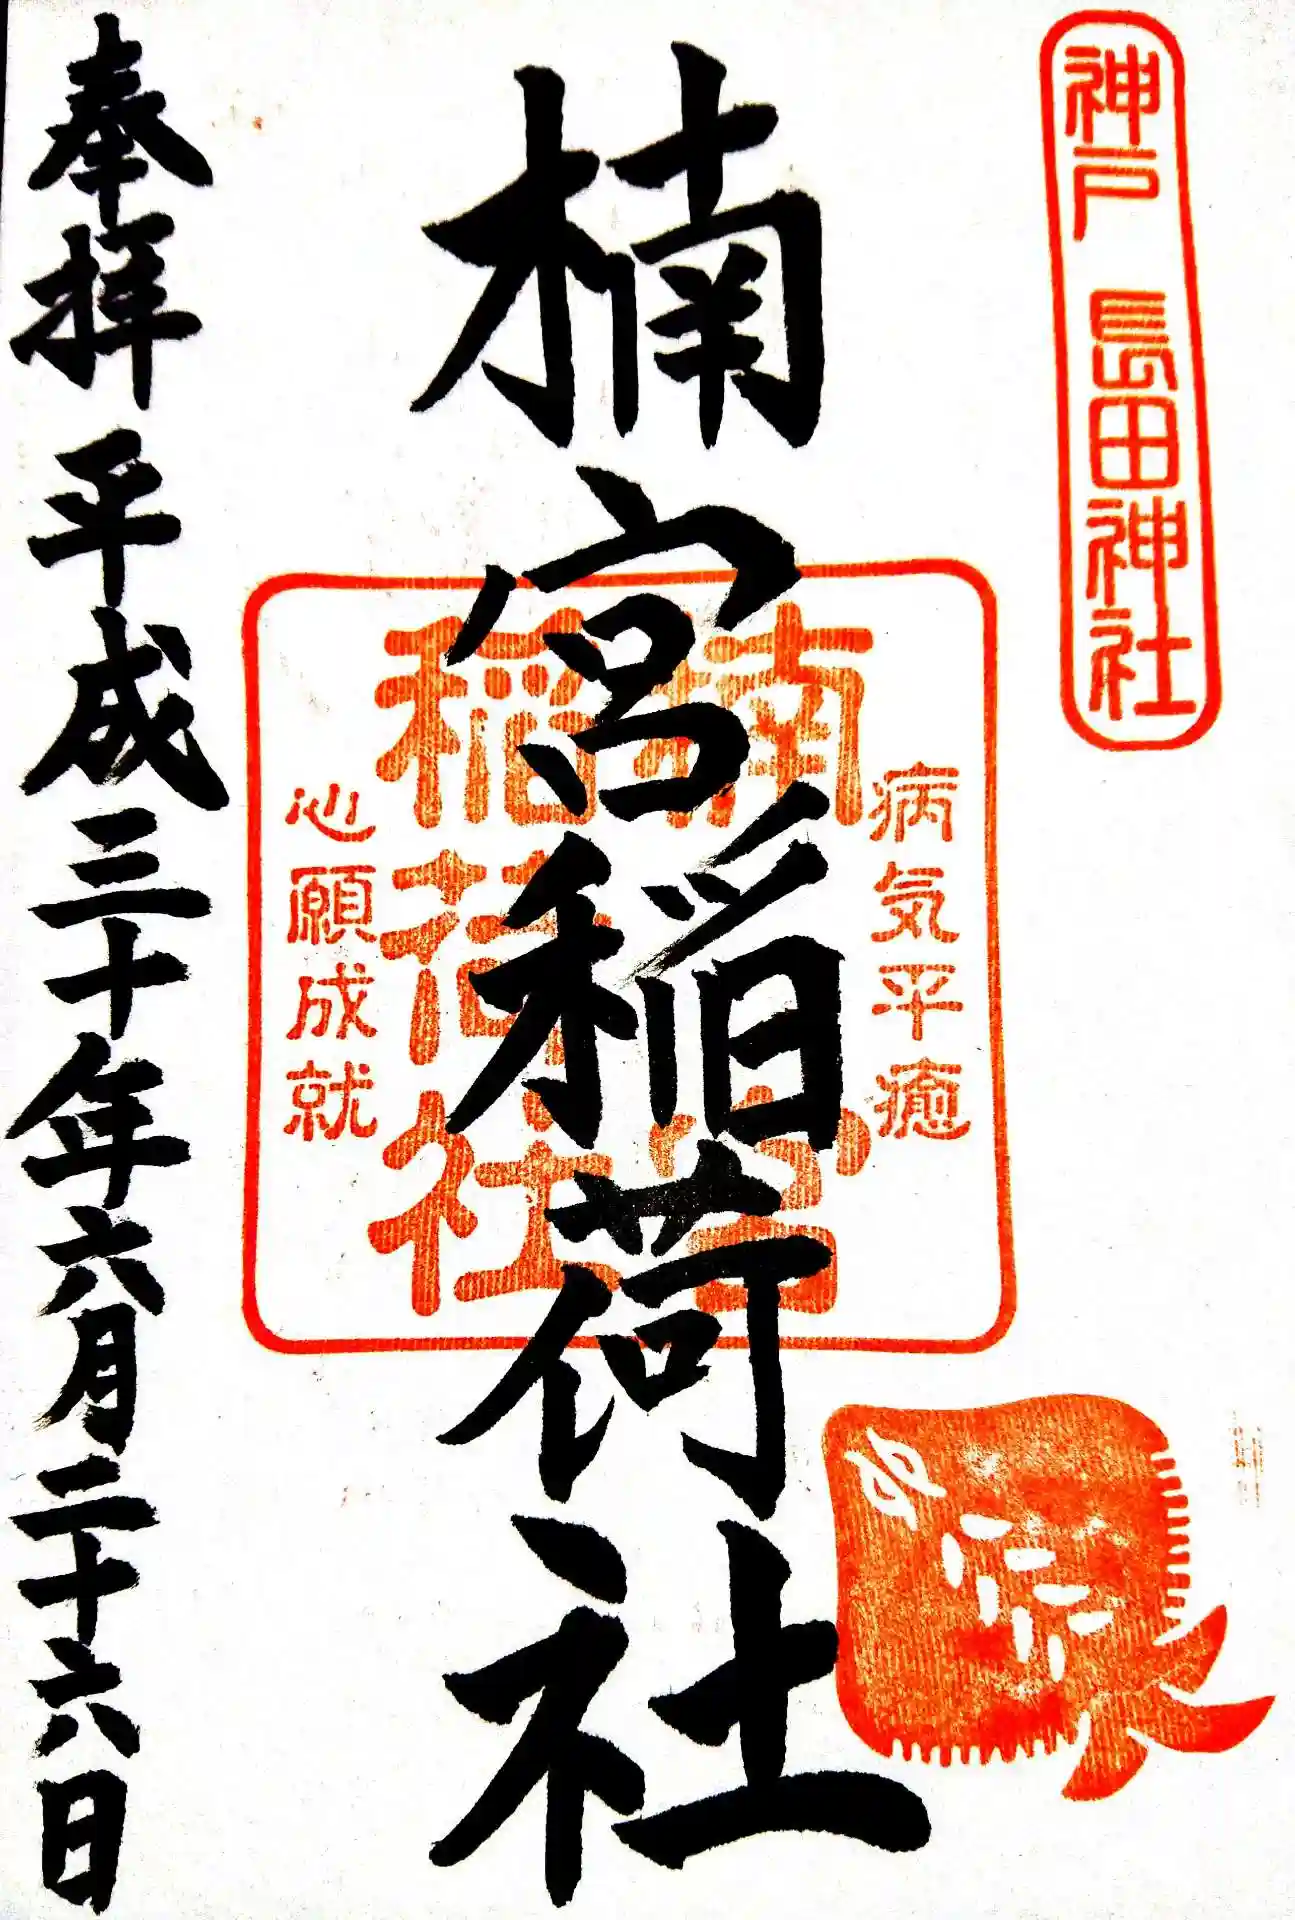 神戸 長田神社
楠宮稲荷社
病気平癒
楠宮
稲荷社
心願成就
奉拝 平成三十年六月二十六日